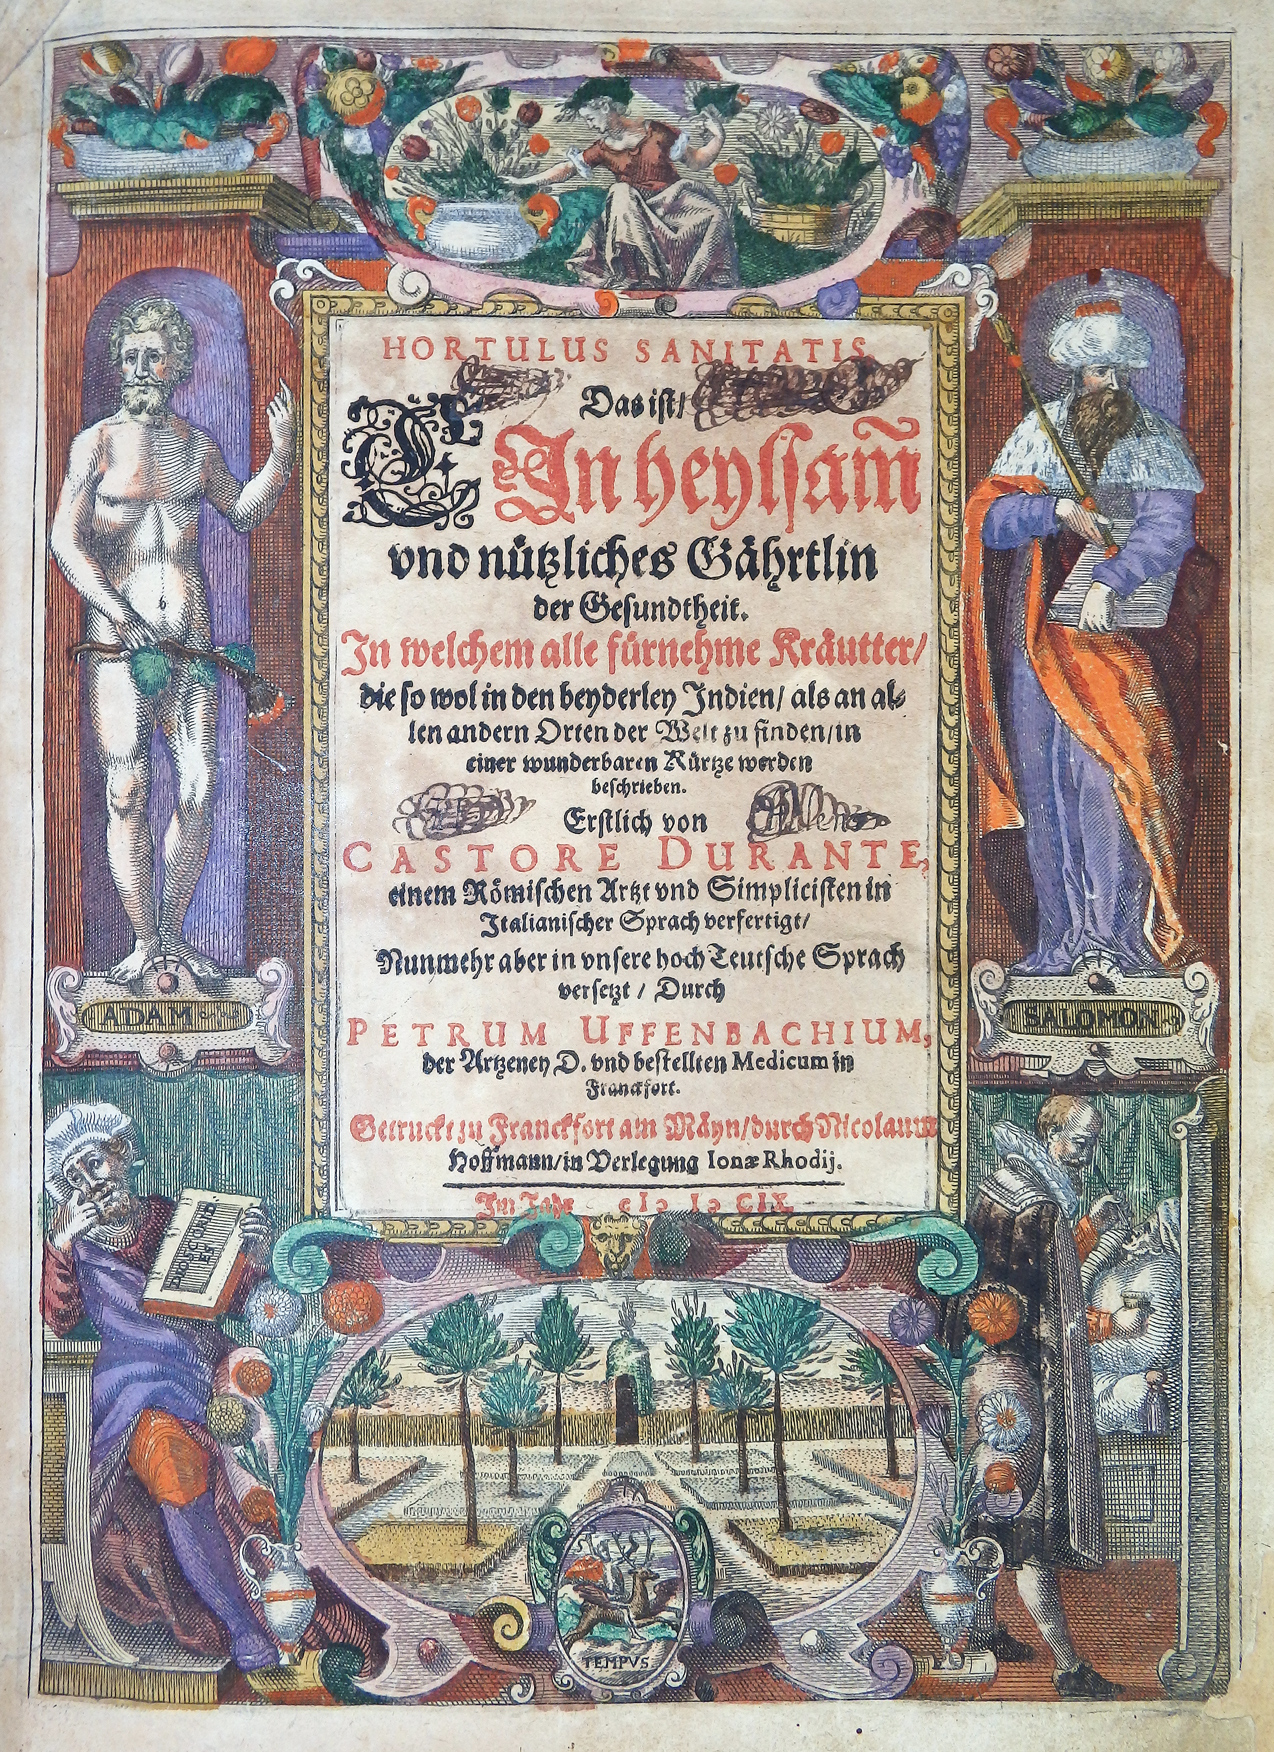 HORTULUS SANITATIS,
Das ist/
EIn heylsam̃
vnd nützliches Gährtlin
der Gesundtheit.
In welchem alle fürnehme Kräutter/
die so wol in den beyderley Indien/ als an al-
len andern Orten der Welt zu finden/in
einer wunderbaren Kürtze werden
beschrieben.
Erstlich von
CASTORE DURANTE,
einem Römischen Artzt vnd Simplicisten in
Italianischer Sprach verfertigt/
Nunmehr aber in vnsere hoch Teutsche Sprach
versetzt / Durch
PETRUM UFFENBACHIUM,
der Artzeney D. vnd bestellten Medicum in
Franckfort.
Getruckt zu Franckfort am Mäyn/durch Nicolaum
Hoffmann/in Verlegung Ionæ Rhodij.
Im Jahr cIɔ Iɔ CIX.
ADAM
SALOMON
DIOSCORIDES
TEMPVS